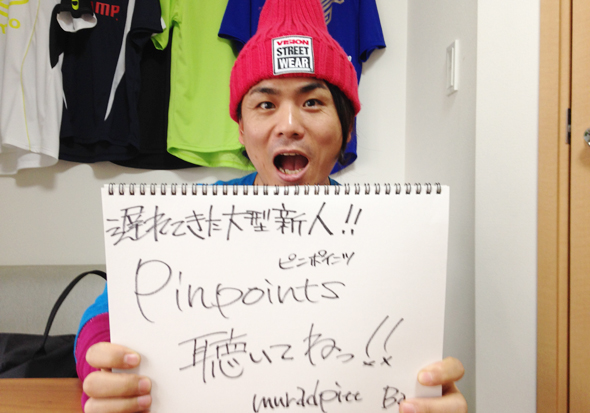 MP.
VISION
STREET
WEAR
遅れてきた大型新人!!
ピンポインツ
Pinpoints
聴いてねっ!!